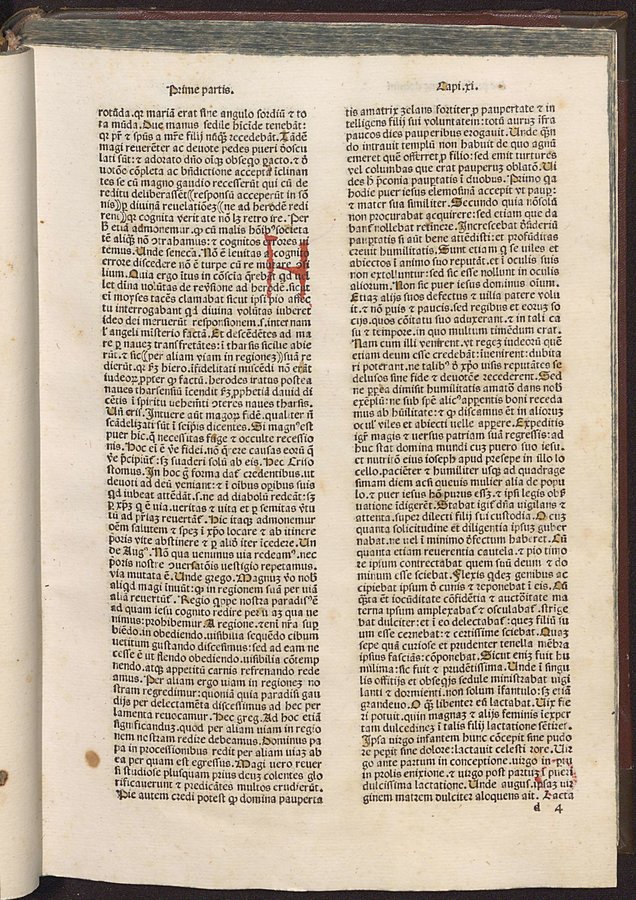 Prime partis.
Capi.xi.
rotūda. qr mariā erat sine angulo sordiū ⁊ to
ta mūda. Due manus sedile hicide tenebāt:
qr pr̄ ⁊ spūs a mr̄e filij nūq̄ȝ recedebāt. Tādē
magi reuerēter ac deuote pedes pueri ꝺoscu
lati sūt: ⁊ adorato dn̄o oīqȝ obseqo pacto. ⁊ ꝺ
uotōe cōpleta ac bn̄dictione accepta īclinan
tes se cū magno gaudio recesserūt qui cū de
reditu deliberassēt (responsū acceperūt in sō
nis) p diuinā reuelationēȝ (ne ad herodē redi
rent) qȝ cognita veritate nō lȝ retro ire. Per
h̄ etiā admonemur. ꝙ cū malis hōibȝ societa
tē aliq̄ȝ nō ꝯtrahamus: ⁊ cognitos errores vi
temus. Unde seneca. Nō ē leuitas a cognito
errore discedere nō ē turpe cū re mutare ꝯsi
lium. Quia ergo itus in cōscia q̄rebāt qd vel
let dina volūtas de reuersione ad herodē. sicut
ei moyses tacēs clamabat sicut ipsi pio affec
tu interrogabant qd diuina volūtas iuberet
ideo dei meruerūt responsionem .s. internam
l' angeli misterio factā. Et descēdētes ad ma
re p nauez transfretātes: ī tharsis sicilie abie
rūt. ⁊ sic (per aliam viam in regionez) suā re
dierūt. qr fȝ hiero. īfidelitati misceri nō erāt
iudeorȝ. ppter ꝙ factū. herodes iratus postea
naues tharsensiū īcendit fȝ ꝓphetiā dauid di
cētis ī spiritu vehemēti ꝯteres naues tharsis.
Un̄ cris. Intuere aūt magorȝ fidē. qualiter nō
scādelizati sūt ī seipis dicentes. Si magnꝰ est
puer hic. q̄ necessitas fuge ⁊ occulte recessio
nis. Hoc ei ē ve fidei. nō q̄rere causas eorū q̄
ve p̄cipiūt: sȝ suaderi solū ab eis. Hec Criso
stomus. In hoc q̄ forma dat̄ credentibus. ut
deuoti ad deū veniant: ⁊ ī oībus opibus suis
qd iubeat attēdāt. s. ne ad diabolū redeāt: sȝ
p xp̄ȝ q ē via. veritas ⁊ vita et p semitas v̄tu
tū ad pr̄iaȝ reuertāt̄. Hic itaqȝ admonemur
oēm salutem ⁊ speȝ ī xp̄o locare ⁊ ab itinere
poris vite abstinere ⁊ p aliō iter īcedere. Un
de Augꝰ. Nō qua uenimus via redeamꝰ. nec
poris nostre ꝯuersatōis uestigio repetamus.
via mutata ē. Unde grego. Magnuȝ vo nob̄
aliqd magi īnuūt: ꝙ in regionem suā per viā
alia reuertūt̄. Regio q̄ppe nostra paradisꝰ ē
ad quam iesu cognito redire per ui aȝ qua ve
nimus: prohibemur. A regione. ⁊ eni nr̄a sup̄
biēdo. in obediendo. uisibilia sequēdo cibum
uetitum gustando discessimus: sed ad eam ne
cesse ē ut flendo obediendo. uisibilia cōtemp
nendo. atqȝ appetitū carnis refrenando rede
amus. Per aliam ergo uiam in regionez no
stram regredimur: quoniā quia paradisi gau
dijs per delectamēta discessimus ad hec per
lamenta reuocamur. Hec greg. Ad hoc etiā
significanduȝ. quod per aliam uiam in regio
nem nostram redire debeamus. Dominus pa
pa in processionibus redit per aliam uiaȝ ab
ea per quam est egressus. Magi vero reuer
si studiose plusquam prius deuȝ colentes glo
rificauerunt ⁊ predicātes multos crudierūt.
Pie autem credi potest ꝙ domina pauperta
tis amatrix zelans fortiter p paupertate ⁊ in
telligens filij sui voluntatem: totū auruȝ īfra
paucos dies pauperibus erogauit. Unde qn̄
do intrauit templū non habuit de quo agnū
emeret quē offerret p filio: sed emit turtures
vel columbas que erat pauperuȝ oblatō. Ui
des h̄ pconia pauptatis ī duobus. Primo qa
hodie puer iesus elemosinā accepit vt paup:
⁊ mater sua similiter. Secundo quia nō solū
non procurabat acquirere: sed etiam que da
bant̄ nollebat retinere. Increscebat ꝺsideriū
pauptatis si aūt bene attēdisti: et profūditas
creuit humilitatis. Sunt etiam q se viles et
abiectos ī animo suo reputāt. et ī oculis suis
non extollunt̄: sed sic esse nollunt in oculis
aliorum. Non sic puer iesus dominus oīum.
Etiaȝ alijs suos defectus ⁊ uilia patere volu
it. ⁊ nō puis ⁊ paucis. sed regibus et eorȝ so
cijs. quos cōitatu suo adduxerant. ⁊ in tali ca
su ⁊ tempore. in quo multum timēdum erat.
Nam cum illi venirent. vt regeȝ iudeorū quē
etiam deum esse credebāt: iuenirent: dubita
ri poterant. ne talibꝰ ꝺ xp̄o uisis reputātes se
delusos sine fide ⁊ deuotōe recederent. Sed
ne ppea dimisit humilitatis amatō dans nob̄
explū: ne sub spē alicꝰ apparentis boni receda
mus ab hūilitate: ⁊ ꝙ discamus et in alioruȝ
oculꝰ viles et abiecti uelle apperere. Expeditis
igr̄ magis ⁊ uersus patriam suā regressis: ad
huc stat domina mundi cuȝ puero suo iesu.
et nutricō eius ioseph apud presepe in illo lo
cello. paciēter ⁊ humiliter usqȝ ad quadrage
simam diem acsi quevis mulier alia de popu
lo. ⁊ puer iesus hō purus essȝ. ⁊ ipsi legis obs̄
uatione īdigerēt. Stabat igit̄ dn̄a uigilans ⁊
attenta. super dilecti filij sui custodia. O cuȝ
quanta solicitudine et diligentia ipsuȝ guber
nabat. ne uel ī minimo ꝺfectum haberet. Cū
quanta etiam reuerentia cautela. ⁊ pio timo
re ipsum contrectabat quem suū deum ⁊ do
minum esse sciebat. Flexis qdeȝ genibus ac
cipiebat ipsum ꝺ cunis ⁊ reponebat ī eis. Cū
q̄ta et iocūditate cōfidētia ⁊ auctōitate ma
terna ipsum amplexabat̄ ⁊ osculabat̄. strīge
bat dulciter: et ī eo delectabat̄: queȝ filiū su
um esse cernebat: ⁊ certissime sciebat. Quaȝ
sepe quā curiose et prudenter tenella mēbra
ipsius fascians: cōponebat. Sicut eniȝ fuit hu
milima: sic fuit ⁊ prudētissima. Unde ī singu
lis offitijs et obseqijs sedule ministrabat vigi
lanti ⁊ dormienti. non solum īfantulo: sȝ etiā
grandeuo. O ꝙȝ libenter eū lactabat. Uix fie
ri potuit. quin magnaȝ ⁊ alijs feminis īexper
tam dulcedineȝ ī talis filij lactatione sētiret.
Ipsa virgo infantem hunc cōcepit sine pudo
re pepit sine dolore: lactauit celesti rore. Uir
go ante partum in conceptione. uirgo in partu
in prolis enixione. ⁊ virgo post partuȝ ī pueri
dulcissima lactatione. Unde augus. ipsaȝ vir
ginem matrem dulciter aloquens ait. Lacta
d 4
H